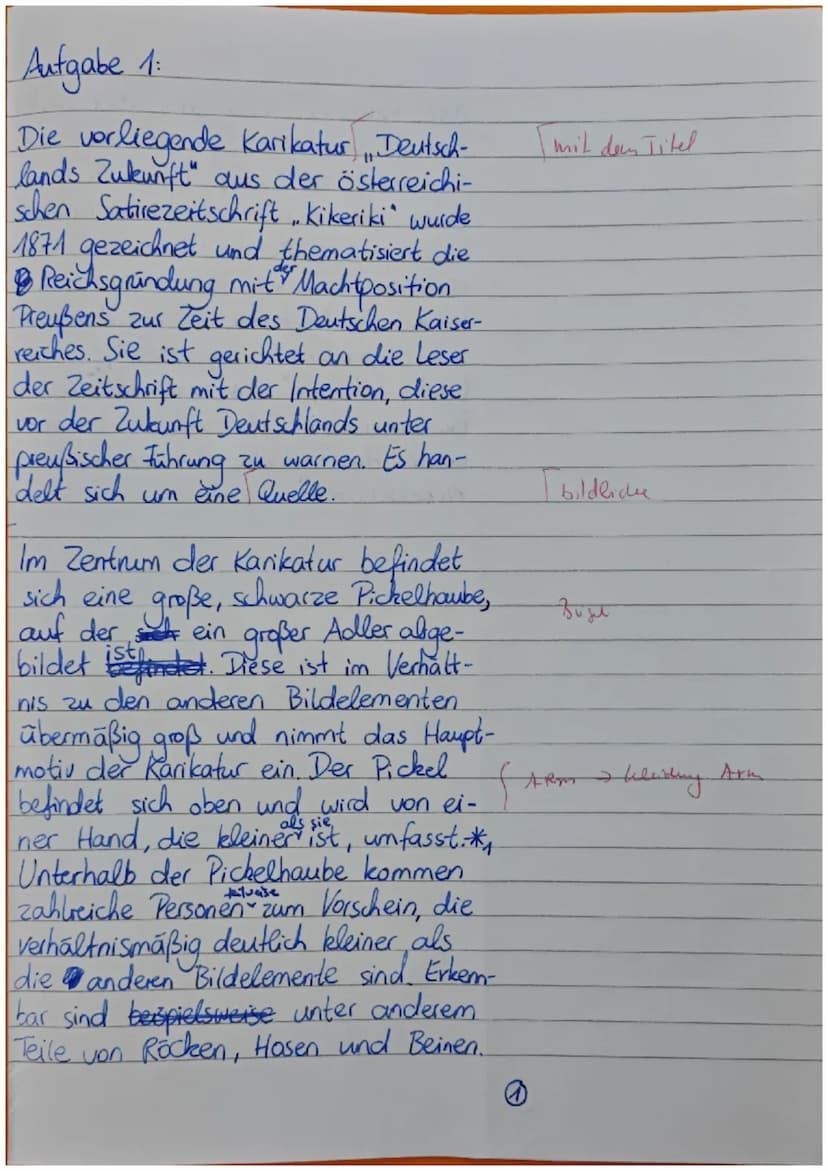 Aufgabe 1:
Die vorliegende Karikatur „Deutsch-
mit dem Titel
lands Zukunft" aus der österreichi-
schen Satirezeitschrift „Kikeriki" wurde
1871 gezeichnet und thematisiert die
Reichsgründung mit der Machtposition
Preußens zur Zeit des Deutschen Kaiser-
reiches. Sie ist gerichtet an die Leser
der Zeitschrift mit der Intention, diese
vor der Zukunft Deutschlands unter
preußischer Führung zu warnen. Es han-
delt sich um eine Quelle.
bildliche
Im Zentrum der Karikatur befindet
sich eine große, schwarze Pickelhaube,
auf der sich ein großer Adler abge-
bildet ist befindet. Diese ist im Verhält-
nis zu den anderen Bildelementen
übermäßig groß und nimmt das Haupt-
motiv der Karikatur ein. Der Pickel
Arm → Kleidung Arm
befindet sich oben und wird von ei-
ner Hand, die kleiner als sie ist, umfasst.*1
Unterhalb der Pickelhaube kommen
zahlreiche Personen zum Vorschein, die
verhältnismäßig deutlich kleiner als
die anderen Bildelemente sind. Erkenn-
bar sind beispielsweise unter anderem
Teile von Röcken, Hosen und Beinen.
1